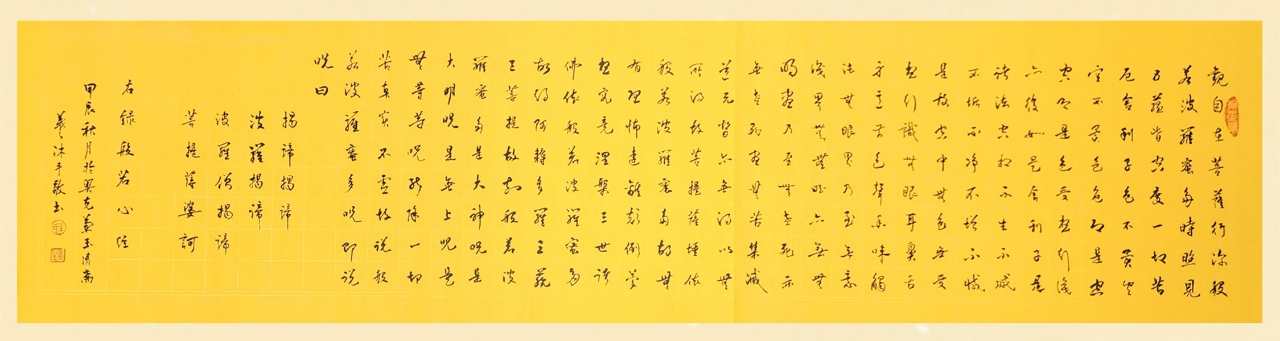 觀自在菩薩行深般
若波羅蜜多時照見
五蘊皆空度一切苦
厄舍利子色不異空
空不異色色即是空
空即是色受想行識
亦復如是舍利子是
諸法空相不生不滅
不垢不淨不增不減
是故空中無色無受
想行識無眼耳鼻舌
身意無色聲香味觸
法無眼界乃至無意
識界無無明亦無無
明盡乃至無老死亦
無老死盡無苦集滅
道无智亦無得以無
所得故菩提薩埵依
般若波羅蜜多故無
有恐怖遠離顛倒夢
想究竟涅槃三世諸
佛依般若波羅蜜多
故得阿耨多羅三藐
三菩提故知般若波
羅蜜多是大神呪是
大明呪是無上呪是
無等等呪能除一切
苦真實不虛故說般
若波羅蜜多呪即說
呪曰
揭諦揭諦
波羅揭諦
波羅僧揭諦
菩提薩婆訶
右錄般若心經
甲辰秋月於玉清齋
沐手敬書